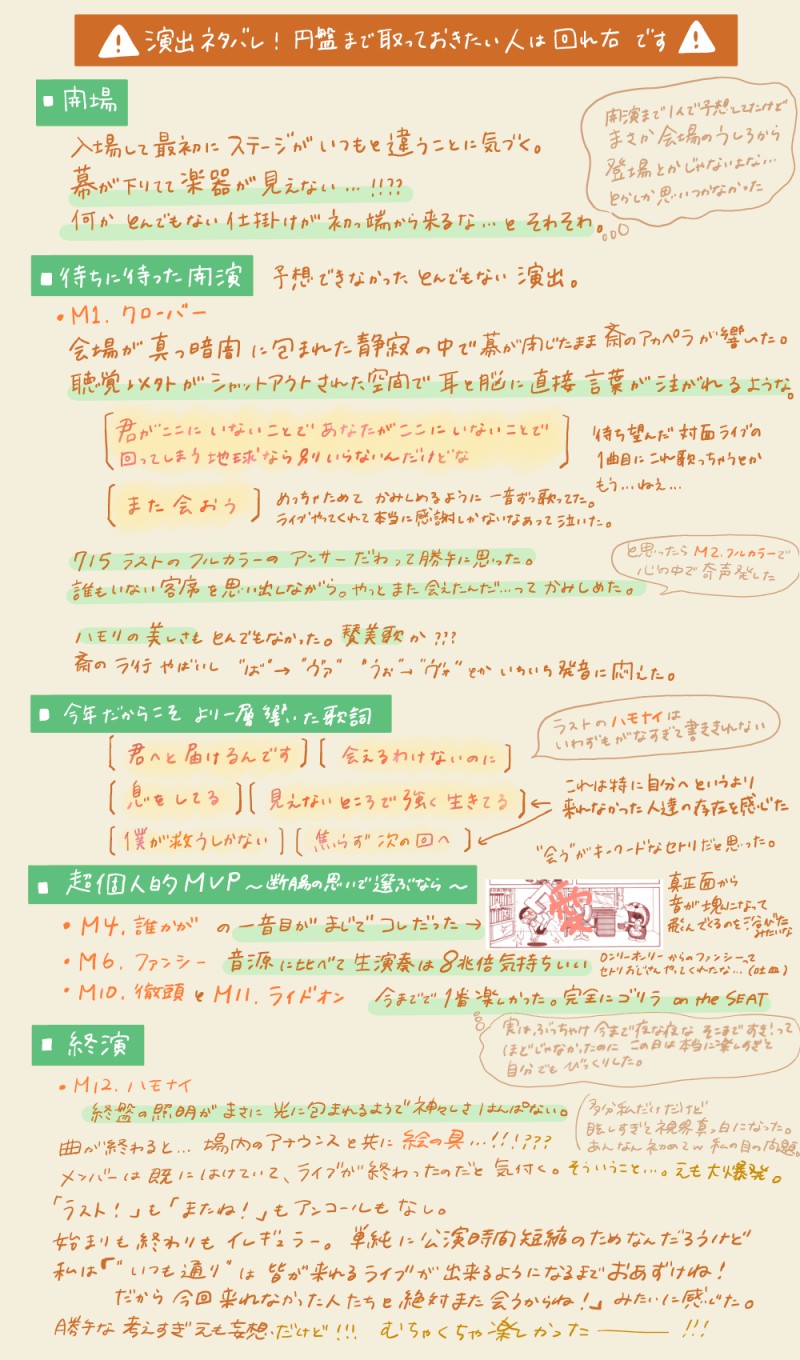 演出ネタバレ！円盤まで取っておきたい人は回れ右です
■開場
入場して最初にステージがいつもと違うことに気づく。
幕が下りてて楽器が見えない…!!??
何かとんでもない仕掛けが初っ端から来るな…とそわそわ。
開演まで1人で予想してたけど
まさか会場のうしろから
登場とかじゃないよな…
とかしか思いつかなかった
■待ちに待った開演 予想できなかったとんでもない演出。
・M1. クローバー
会場が真っ暗闇に包まれた静寂の中で幕が閉じたまま斎のアカペラが響いた。
聴覚以外がシャットアウトされた空間で耳と脳に直接言葉が注がれるような。
[君がここにいないことであなたがここにいないことで
回ってしまう地球なら別いらないんだけどな]
待ち望んだ対面ライブの
1曲目にこれ歌っちゃうとか
もう…ねえ…
[また会おう] めっちゃためてかみしめるように一音ずつ歌ってた。
ライブやってくれて本当に感謝しかないなあって泣いた。
715ラストのフルカラーのアンサーだわって勝手に思った。
誰もいない客席を思い出しながら。やっとまた会えたんだ…ってかみしめた。
と思ったらM2.フルカラーで
心の中で奇声発した
ハモリの美しさもとんでもなかった。賛美歌か???
斎のラ行やばいし "ば"→"ヴァ" "うぉ"→"ヴォ"とかいちいち発音に悶えた。
■今年だからこそより一層響いた歌詞
ラストのハモナイは
いわずもがなすぎて書ききれない
[君へと届けるんです] [会えるわけないのに]
[息をしてる] [見えないところで強く生きてる]←
[僕が救うしかない] [焦らず次の回へ]
これは特に自分へというより
来れなかった人達の存在を感じた
"会う"がキーワードなセトリだと思った。
■超個人的MVP～断腸の思いで選ぶなら～
・M4. 誰かが の一音目がまじでコレだった→
愛
真正面から
音が塊になって
飛んでくるのを浴びた
みたいな
・M6. ファンシー 音源に比べて生演奏は8兆倍気持ちいい
ロンリーオンリーからのファンシーって
セトリおじさんやってくれたな…(吐血)
・M10. 徹頭とM11. ライドオン 今までで1番楽しかった。完全にゴリラ on the SEAT
実はぶっちゃけ今まで夜な夜なそこまですき!って
ほどじゃなかったのにこの日は本当に楽しすぎと
自分でもびっくりした。
■終演
・M12. ハモナイ
終盤の照明がまさに光に包まれるようで神々しさはんぱない。
多分私だけだけど
眩しすぎて視界真っ白になった。
あんなん初めてw私の目の問題。
曲が終わると…場内のアナウンスと共に絵の具…!!!???
メンバーは既にはけていて、ライブが終わったのだと気付く。そういうこと…。えも大爆発。
「ラスト！」も「またね！」もアンコールもなし。
始まりも終わりもイレギュラー。単純に公演時間短縮のためなんだろうけど
私は「"いつも通り"は皆が来れるライブが出来るようになるまでおあずけね！
だから今回来れなかった人たちと絶対また会うからね！」みたいに感じた。
勝手な考えすぎえも妄想だけど!!! むちゃくちゃ楽しかった―――!!!